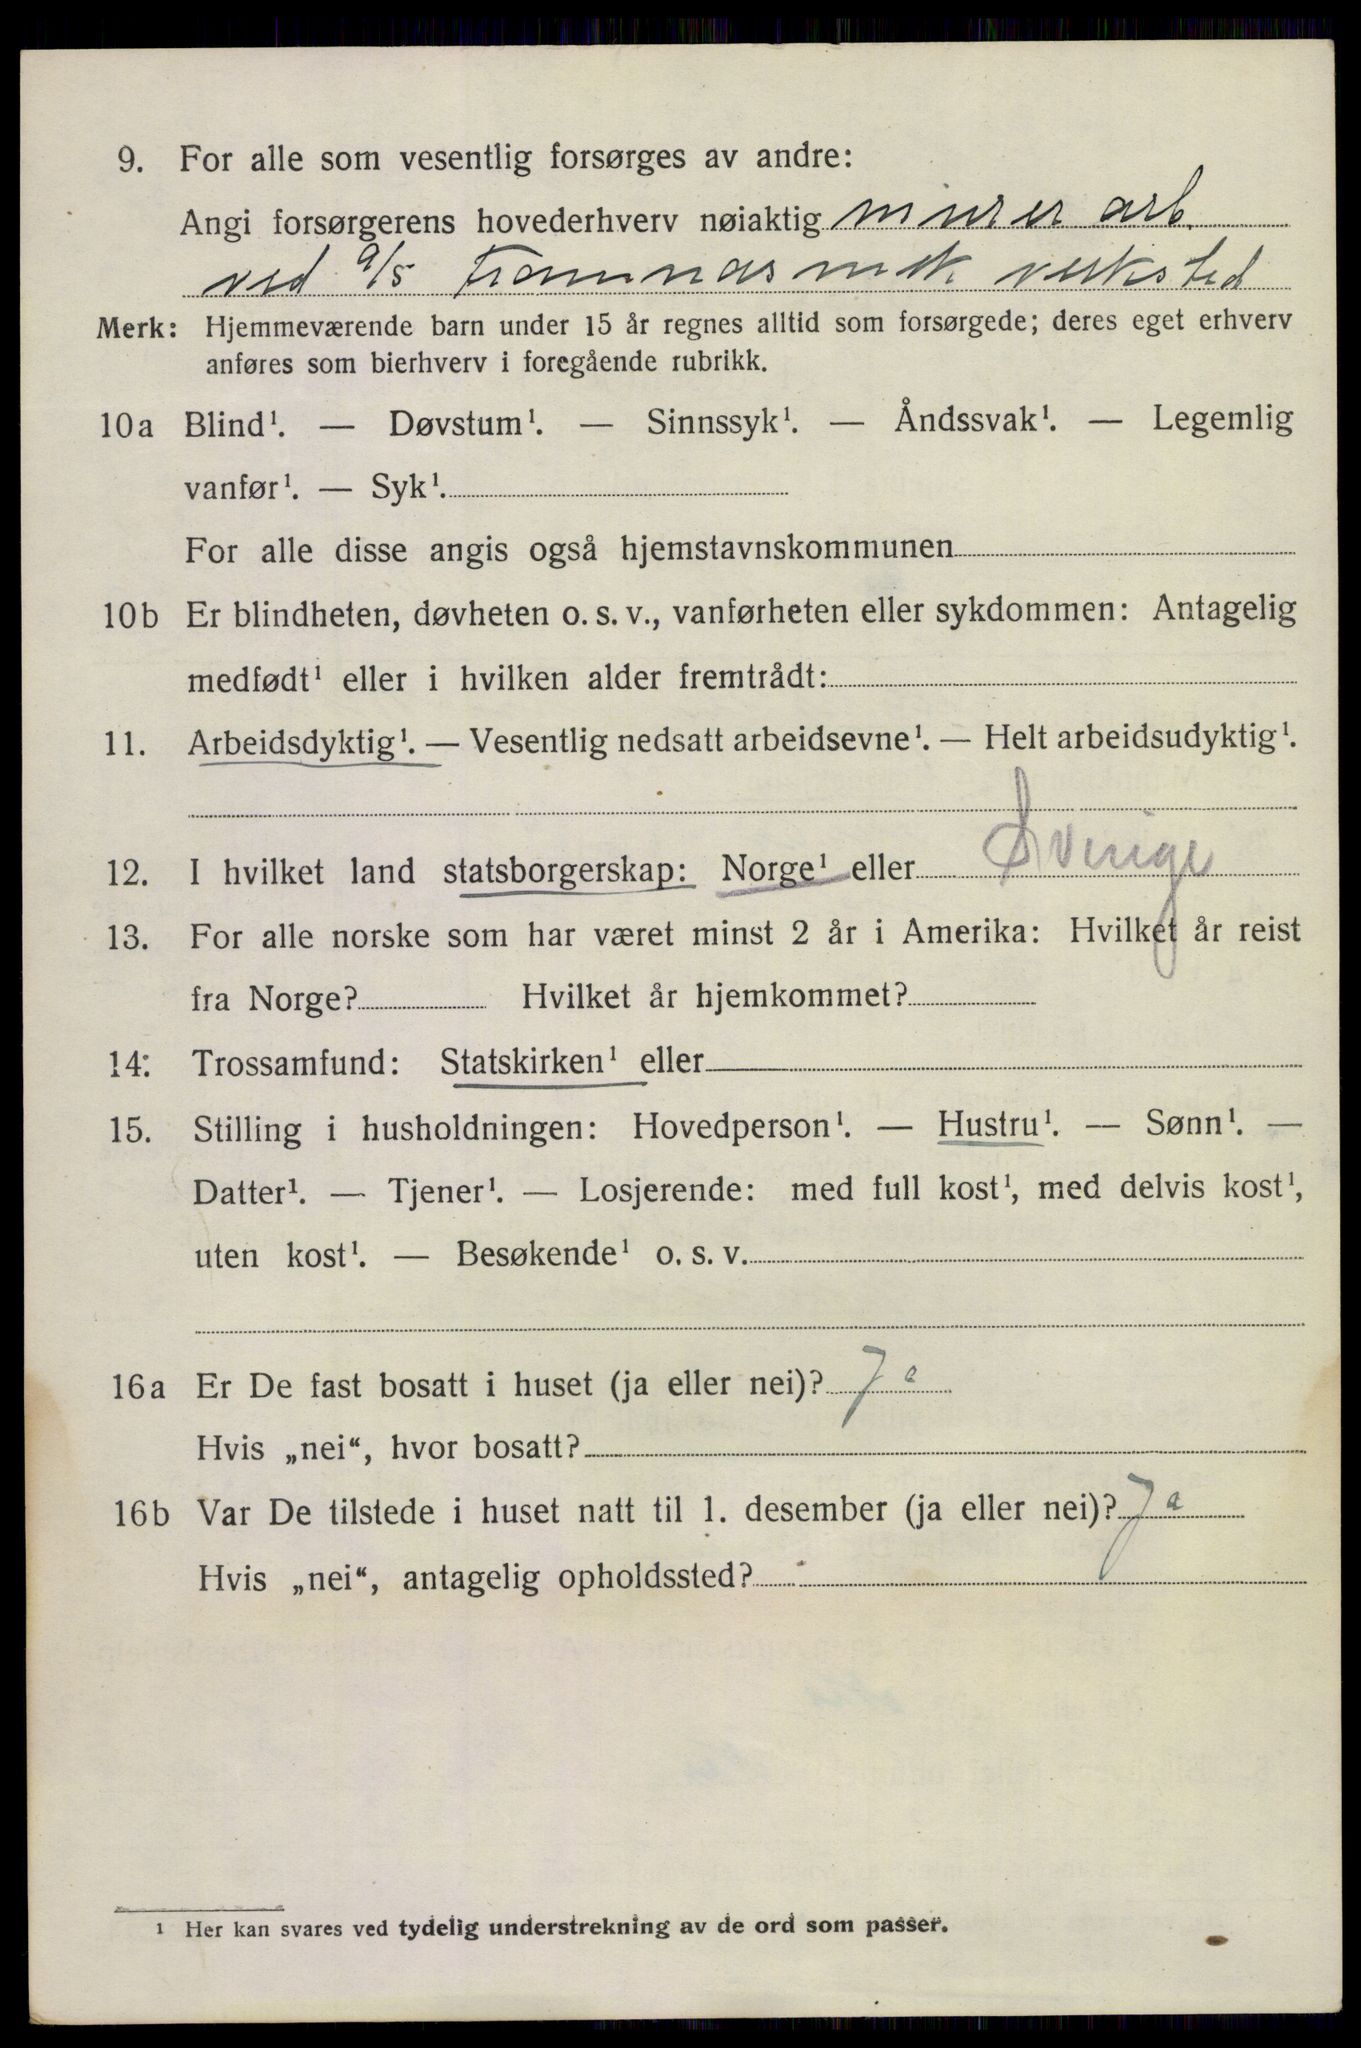 9. For alle som vesentlig forsørges av andre:
Angi forsørgerens hovederhverv nøiaktig murer arb.
ved a/s Framnæs mek verksted
Merk: Hjemmeværende barn under 15 år regnes alltid som forsørgede; deres eget erhverv
anføres som bierhverv i foregående rubrikk.
10a Blind¹. — Døvstum¹. — Sinnssyk¹. — Åndssvak¹. — Legemlig
vanfør¹. — Syk¹.
For alle disse angis også hjemstavnskommunen
10b Er blindheten, døvheten o. s. v., vanførheten eller sykdommen: Antagelig
medfødt¹ eller i hvilken alder fremtrådt:
11. Arbeidsdyktig¹. — Vesentlig nedsatt arbeidsevne¹. — Helt arbeidsudyktig¹.
12. I hvilket land statsborgerskap: Norge¹ eller Sverige
13. For alle norske som har været minst 2 år i Amerika: Hvilket år reist
fra Norge? Hvilket år hjemkommet?
14. Trossamfund: Statskirken¹ eller
15. Stilling i husholdningen: Hovedperson¹. — Hustru¹. — Sønn¹. —
Datter¹. — Tjener¹. — Losjerende: med full kost¹, med delvis kost¹,
uten kost¹. — Besøkende¹ o. s. v.
16a Er De fast bosatt i huset (ja eller nei)? Ja
Hvis „nei“, hvor bosatt?
16b Var De tilstede i huset natt til 1. desember (ja eller nei)? Ja
Hvis „nei“, antagelig opholdssted?
¹ Her kan svares ved tydelig understrekning av de ord som passer.